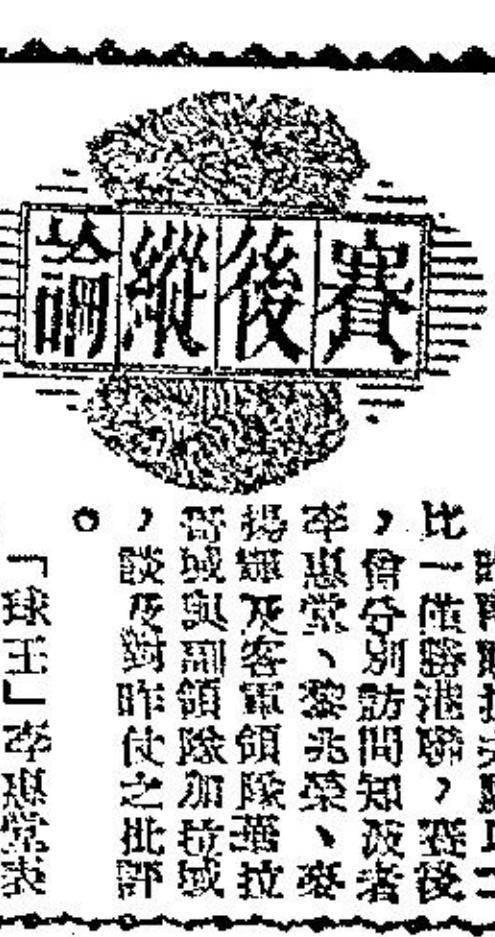 賽後縱論
比一僅勝港聯,賽後
,曾分別訪問知波者
李惠堂、黎兆榮、麥
揚輝及客軍領隊華拉
哥域與副領隊加拉域
,談及對昨仗之批評
。
「球王」李惠堂表